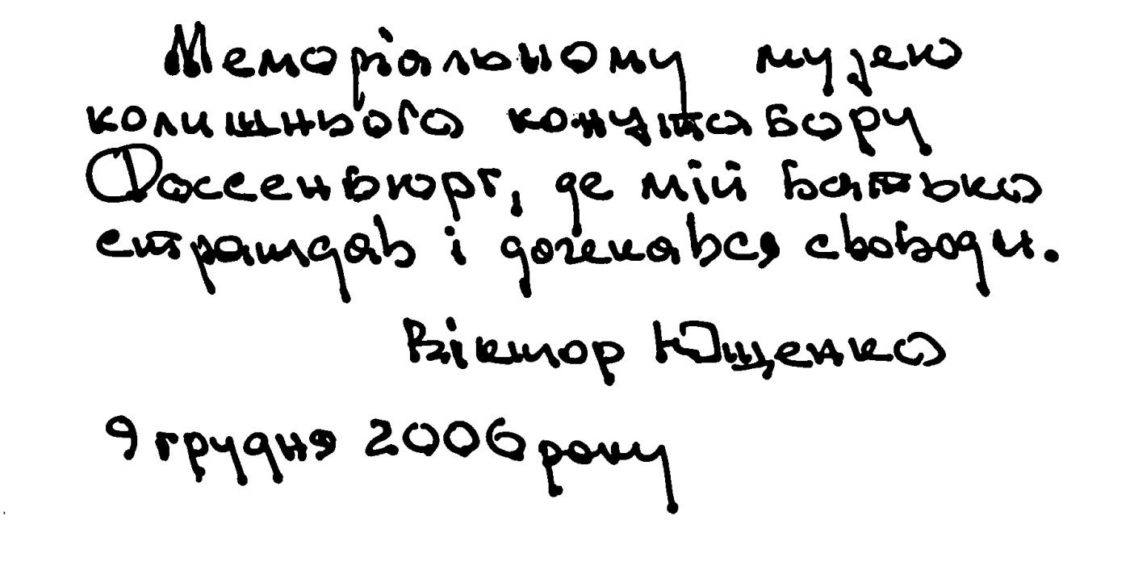 Меморіальному музею
колишнього концтабору
Фоссенбюрг, де мій батько
страждав і дочекався свободи.
Віктор Ющенко
9 грудня 2006 року